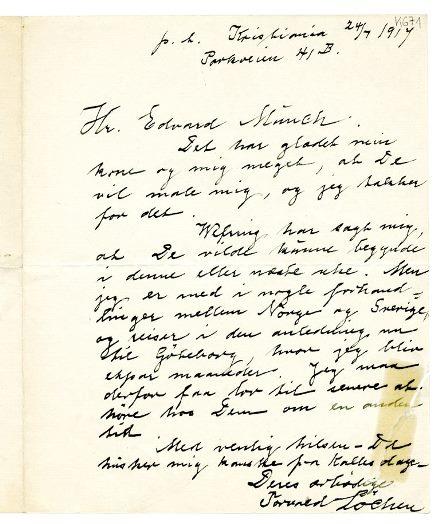 K671
p. t. Kristiania 24/7 1917
Parkveien 41 B.
Hr. Edvard Münch.
Det har glædet min
kone og mig meget, at De
vil male mig, og jeg takker
for det.
Wefring har sagt mig,
at De vilde kunne begynde
i denne eller næste uke. Men
jeg er med i nogle forhand-
linger mellem Norge og Sverige,
og reiser i den anledning nu
til Göteborg, hvor jeg blir
et par maaneder. Jeg maa
derfor faa lov til senere at
høre hos Dem om en anden
tid.
Med venlig hilsen - De
husker mig kanske fra Kalles dage -
Deres ærbødige
Torvald Löchen